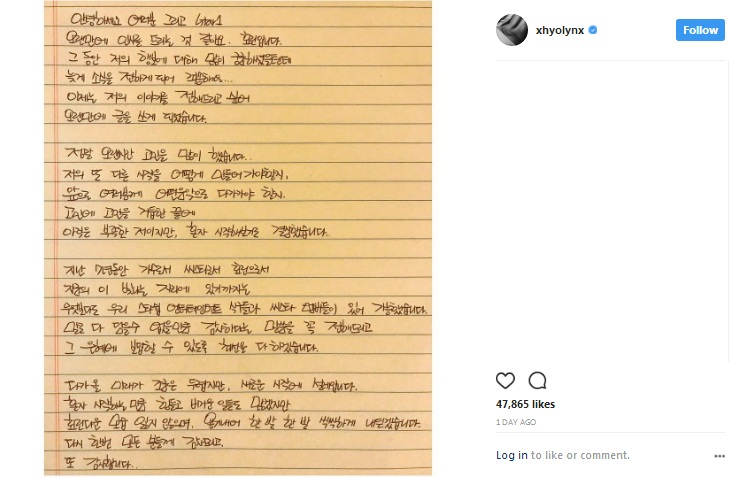 안녕하세요 여러분 그리고
오랜만에 인사를 드리는 것 같아요. 효린입니다.
그 동안 저의 행보에 대해 많이 궁금하셨을텐데
늦게 소식을 전하게 되어 죄송해요...
이제는 저의 이야기를 전해드리고 싶어
오랜만에 글을 쓰게 되었습니다.
정말 오랜시간 고민을 많이 했습니다..
저의 또 다른 시작을 어떻게 만들어가야할지,
앞으로 여러분께 어떤음악으로 다가가야 할지.
고민에 고민을 거듭한 끝에
아직은 부족한 저이지만, 혼자 시작해보기로 결정했습니다.
지난 7년동안 가수로서 씨스타로서 효린으로서
지금의 이 빛나는 자리에 있기까지는
우리 스타쉽 엔터테인먼트 식구들과 씨스타 멤버들이 있어 가능했습니다.
말로 다 담을수 없을만큼 감사하다는 말씀을 꼭 전해드리고
그 은혜에 보답할 수 있도록 최선을 다 하겠습니다.
다가올 미래가 조금은 두렵지만, 새로운 시작에 설레입니다.
혼자 시작하는 만큼 힘들고 버거운 일들도 많겠지만
효린다운 모습 잃지 않으며, 용기내어 한 발 한 발 씩씩하게 내딛겠습니다.
다시 한번 모든 분들께 감사드리고,
또 감사합니다..
xhyolynx
Follow
47,865 likes
1 DAY AGO
Log in to like or comment.